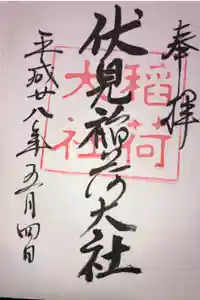 奉拝
伏見稲荷大社
稲荷
大社
平成廿八年五月四日